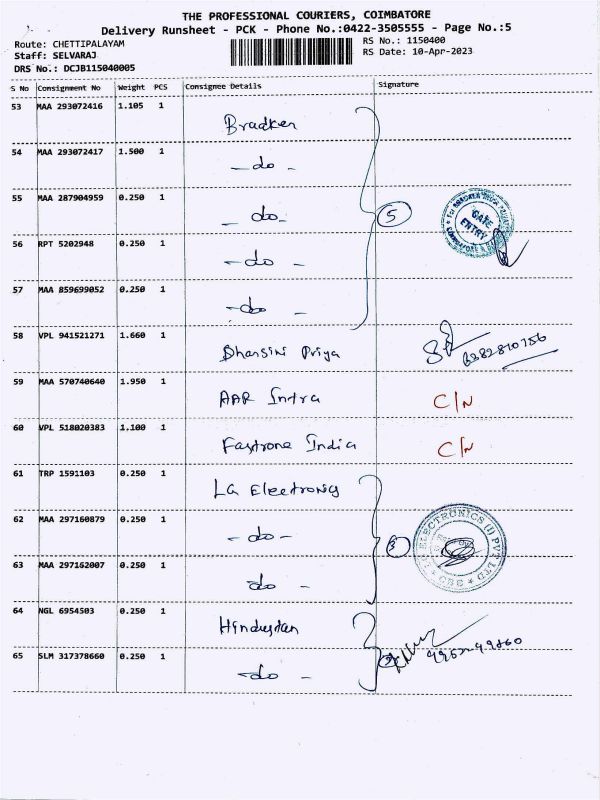 THE PROFESSIONAL COURIERS, COIMBATORE
Delivery Runsheet - PCK - Phone No.:0422-3505555 - Page No.:5
Route: CHETTIPALAYAM RS No.: 1150400
Staff: SELVARAJ RS Date: 10-Apr-2023
DRS No.: DCJB115040005
S No Consignment No Weight PCS Consignee Details Signature
53 MAA 293072416 1.105 1 Bradken
54 MAA 293072417 1.500 1 - do -
55 MAA 287904959 0.250 1 - do - 5 GATE ENTRY
56 RPT 5202948 0.250 1 - do -
57 MAA 859699052 0.250 1 - do -
58 VPL 941521271 1.660 1 Dharsini Priya 6382810156
59 MAA 570740640 1.950 1 AAR Infra C/N
60 VPL 518020383 1.100 1 Fastrone India C/N
61 TRP 1591103 0.250 1 LG Electronics
62 MAA 297160879 0.250 1 - do - 3 ELECTRONICS (I) PVT LTD * CBE *
63 MAA 297162007 0.250 1 do -
64 NGL 6954503 0.250 1 Hindustan
65 SLM 317378660 0.250 1 - do -